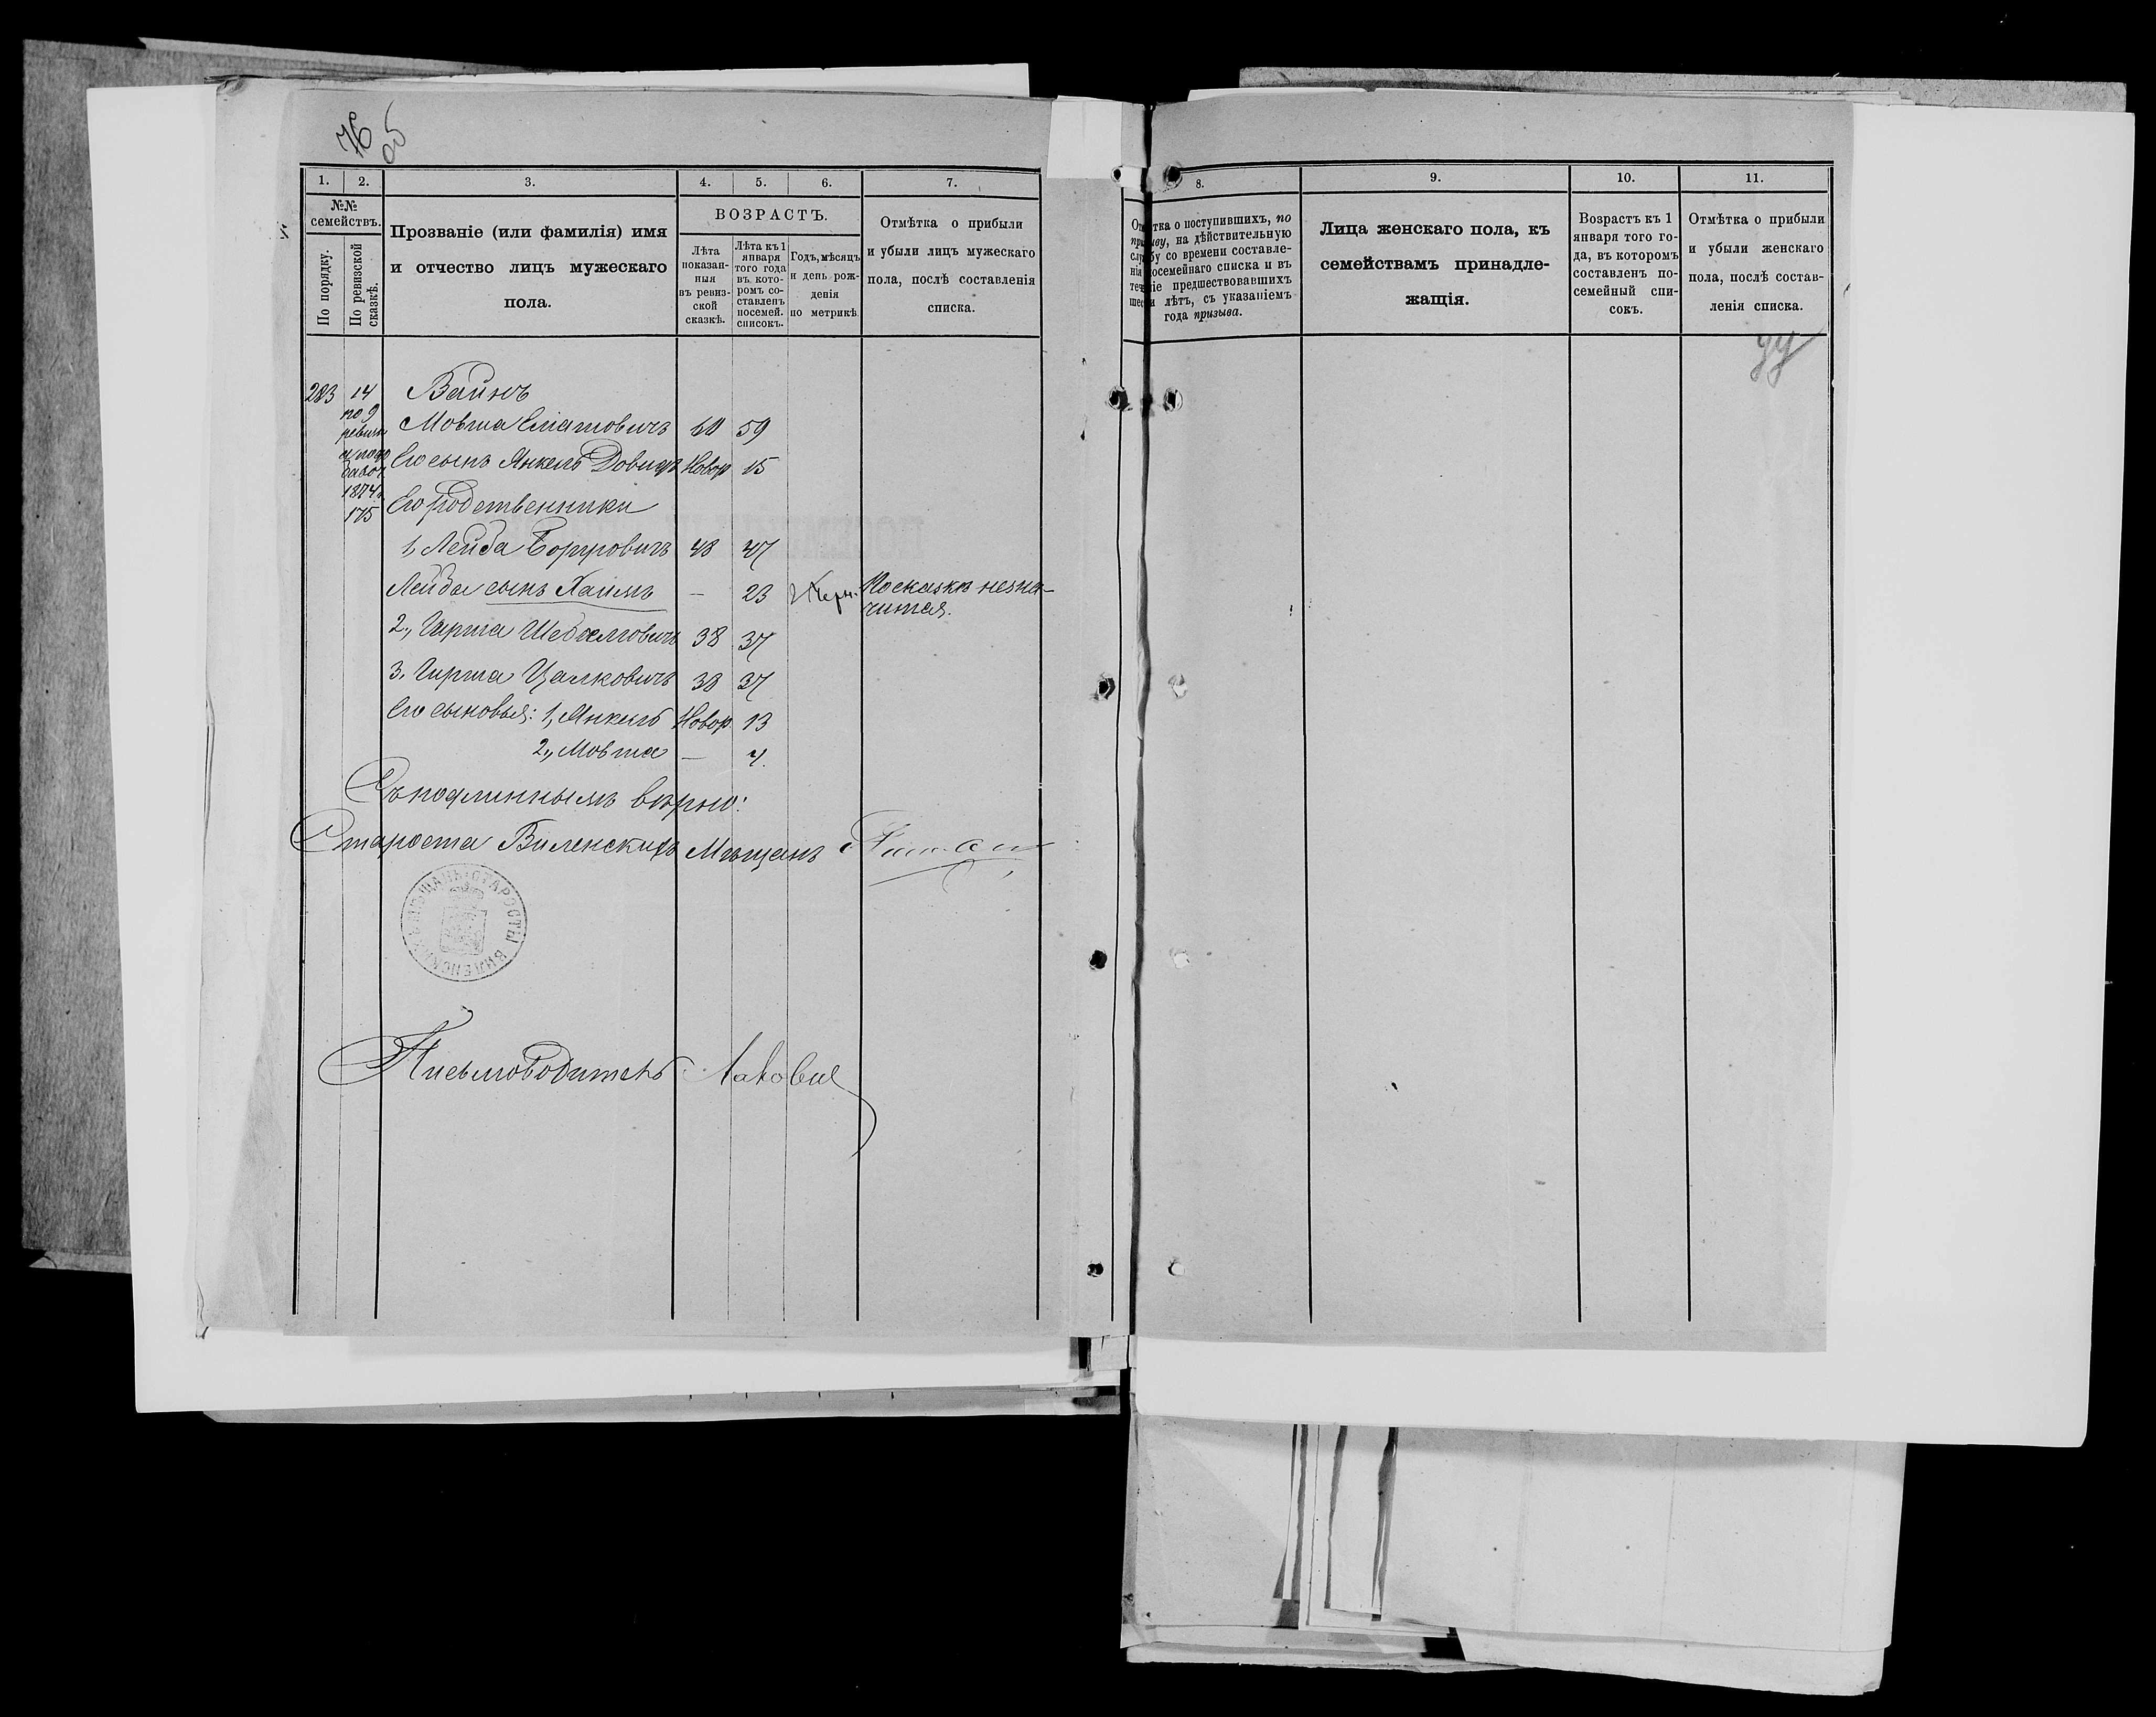 76
об
1. 2. 3. 4. 5. 6. 7.
№№
семействъ.
По порядку.
По ревизской
сказкѣ.
Прозваніе (или фамилія) имя
и отчество лицъ мужескаго
пола.
ВОЗРАСТЪ.
Лѣта
показан-
ныя
въ ревиз-
ской
сказкѣ.
Лѣта къ 1
января
того года
въ кото-
ромъ со-
ставленъ
посемей.
списокъ.
Годъ, мѣсяцъ
и день рож-
денія
по метрикѣ.
Отмѣтка о прибыли
и убыли лицъ мужескаго
пола, послѣ составленія
списка.
283 14 Вайнъ
по 9
ревизіи
Мовша 60 59
Его сынъ Янкель Довидъ Новор 15
1874 г.
175 Его родственники
1, Лейба 48 47
Лейбы сынъ Хаимъ — 23 По сказкѣ незна-
чится.
2., Гирша 38 37
3. Гирша Цалковичъ 38 37
Его сыновья: 1, Янкель Новор. 13
2., Мовша — 4.
Съ подлиннымъ вѣрно:
Староста Виленскихъ Мѣщанъ
СТАРОСТЫ ВИЛЕНСКИХЪ МѢЩАНЪ
Письмоводитель
8. 9. 10. 11.
Отмѣтка о поступившихъ, по
призыву, на дѣйствительную
службу со времени составле-
нія посемейнаго списка и въ
теченіе предшествовавшихъ
шести лѣтъ, съ указаніемъ
года призыва.
Лица женскаго пола, къ
семействамъ принадле-
жащія.
Возрастъ къ 1
января того го-
да, въ которомъ
составленъ по-
семейный спи-
сокъ.
Отмѣтка о прибыли
и убыли женскаго
пола, послѣ состав-
ленія списка.